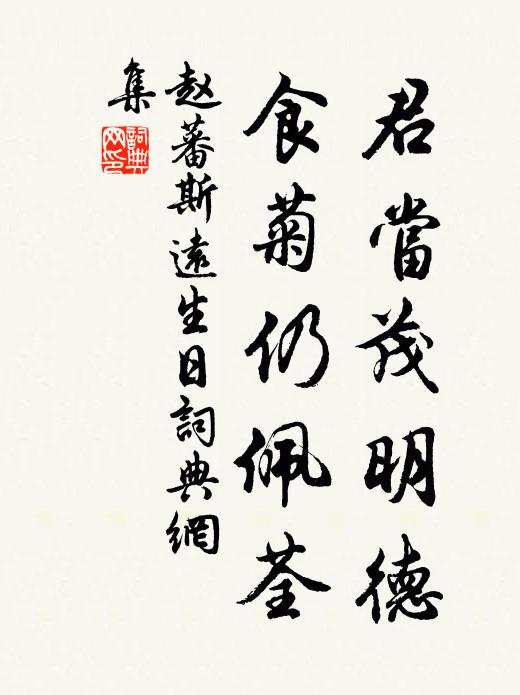 君當茂明德
食菊仍佩荃
赵蕃斯遠生日詞典網
集
詞典网印